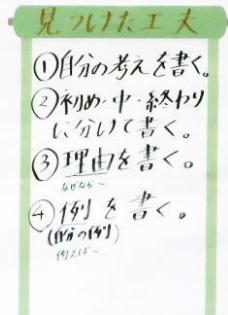 見つけた工夫
①自分の考えを書く。
②初め・中・終わり
に分けて書く。
③理由を書く。
なぜなら〜
④例を書く。
(自分の例)
例えば〜